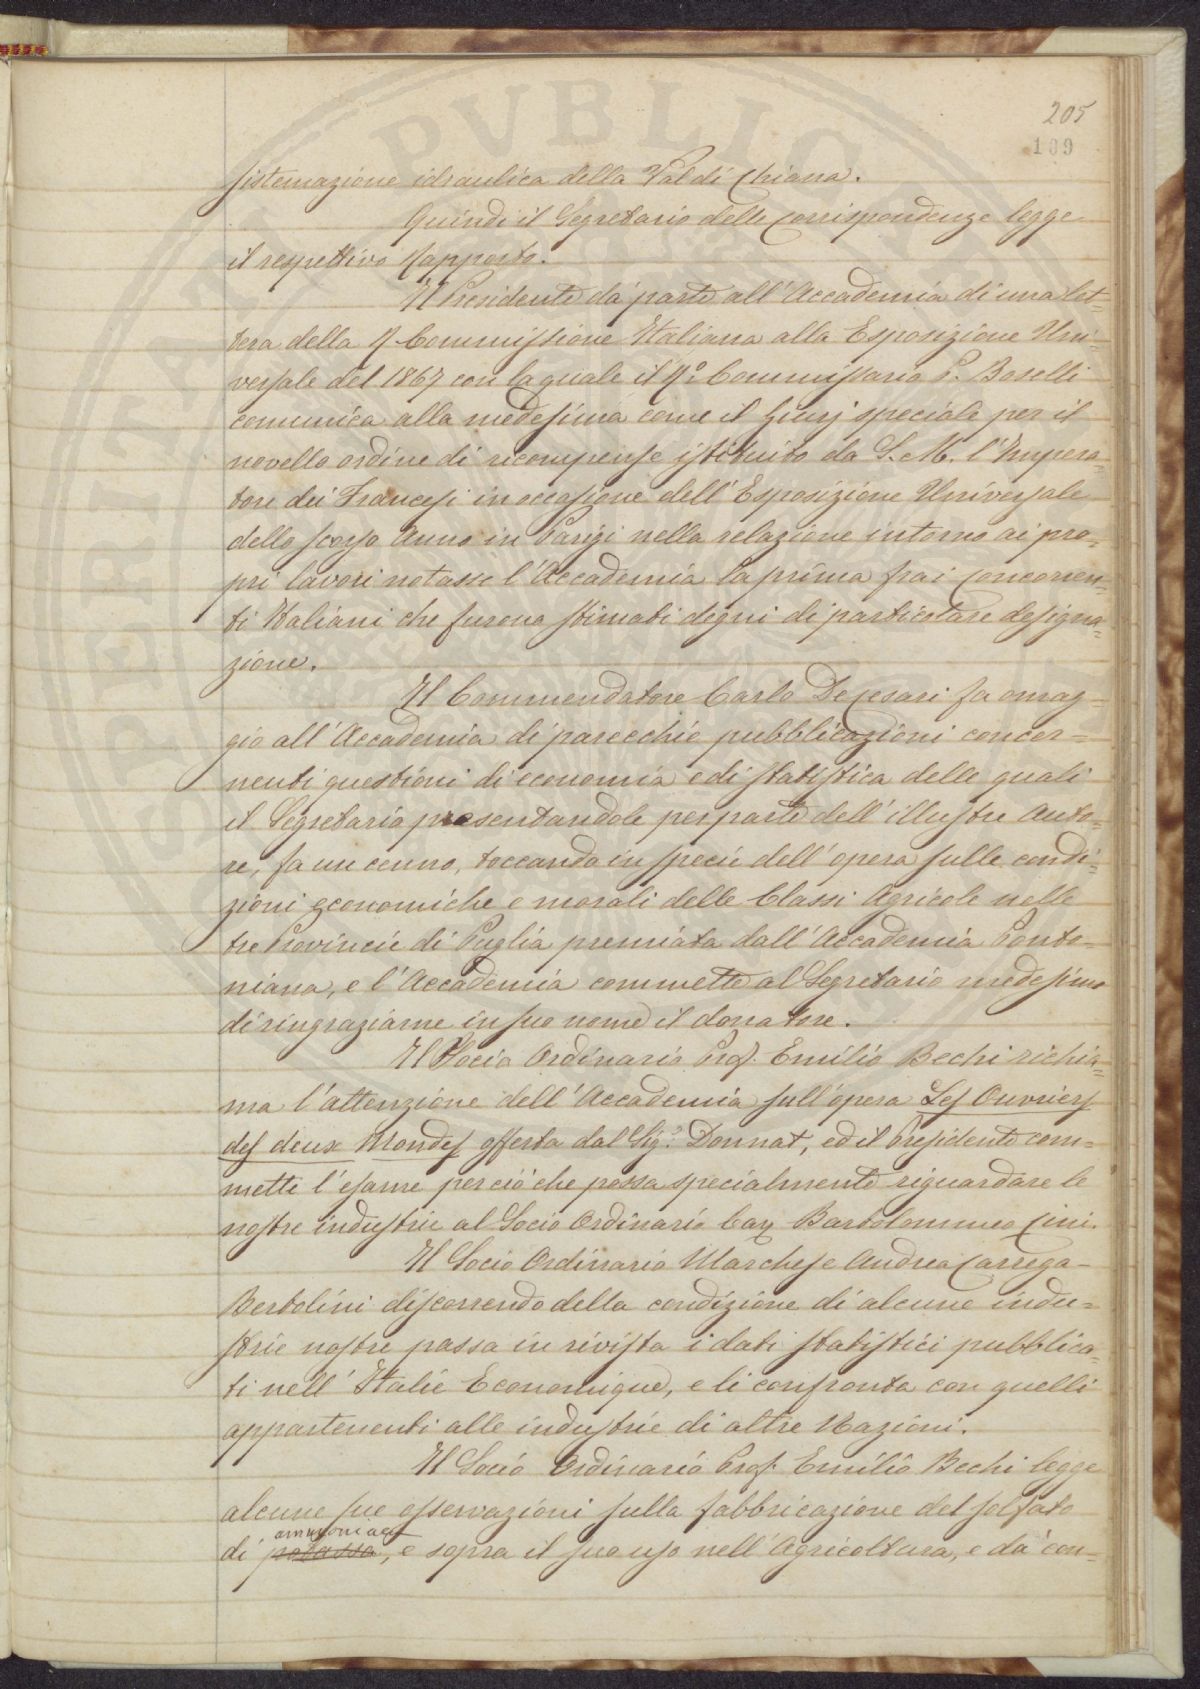 205
109
sistemazione idraulica della Val di Chiana.
Quindi il Segretario delle Corrispondenze legge
il respettivo Rapporto.
Il Presidente dà parte all'Accademia di una let=
tera della R. Commissione Italiana alla Esposizione Uni=
versale del 1867 con la quale il R.º Commissario P. Boselli
comunica alla medesima come il Giurj speciale per il
novello ordine di ricompense istituito da S. M. l'Impera=
tore dei Francesi in occasione dell'Esposizione Universale
dello scorso Anno in Parigi nella relazione intorno ai pro=
pri lavori notasse l'Accademia la prima fra i Concorren=
ti Italiani che furono stimati degni di particolare designa=
zione.
Il Commendatore Carlo De Cesari fa omag=
gio all'Accademia di parecchie pubblicazioni concer=
nenti questioni di economia e di statistica delle quali
il Segretario presentandole per parte dell'illustre Auto=
re, fa un cenno, toccando in specie dell'opera sulle condi=
zioni economiche e morali delle Classi Agricole nelle
tre Provincie di Puglia premiata dall'Accademia Ponto=
niana, e l'Accademia commette al Segretario medesimo
di ringraziarne in suo nome il donatore.
Il Socio Ordinario Prof. Emilio Bechi richia=
ma l'attenzione dell'Accademia sull'opera Les Ouvriers
des deux Mondes offerta dal Sig.º Donnat, ed il Presidente com=
mette l'esame perciò che possa specialmente riguardare le
nostre industrie al Socio Ordinario Cav. Bartolommeo Cini.
Il Socio Ordinario Marchese Andrea Carrega=
Bertolini discorrendo della condizione di alcune indu=
strie nostre passa in rivista i dati statistici pubblica=
ti nell'Italie Economique, e li confronta con quelli
appartenenti alle industrie di altre Nazioni.
Il Socio Ordinario Prof. Emilio Bechi legge
alcune sue osservazioni sulla fabbricazione del solfato
ammoniaca
di potassa, e sopra il suo uso nell'Agricoltura, e dà con=